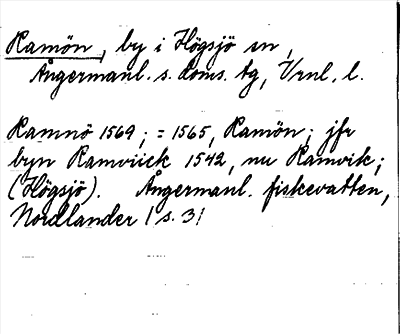 Ramön, by i Högsjö sn,
Ångermanl. s. doms. tg, Vrnl. l.
Ramnö 1569; = 1565, Ramön; jfr
byn Ramviick 1542, nu Ramvik;
(Högsjö). Ångermanl. fiskevatten,
Nordlander (s. 3)